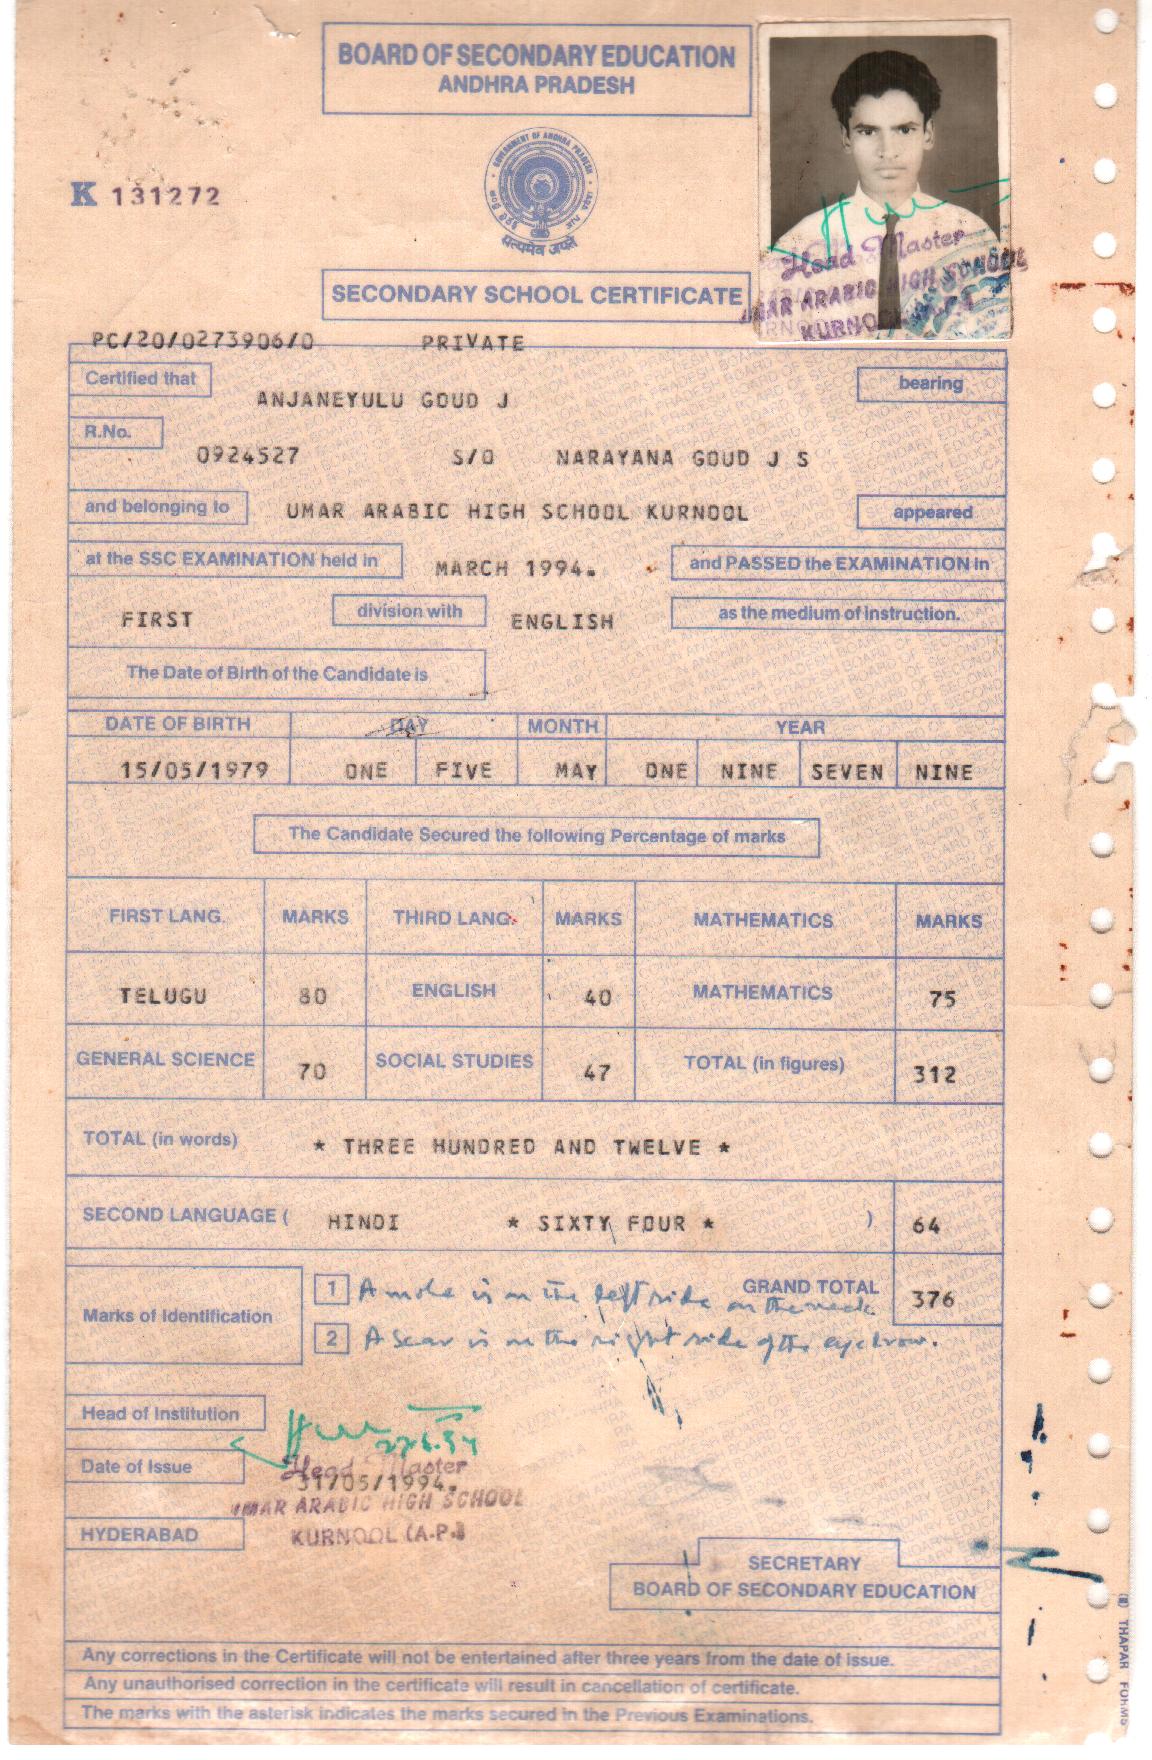 BOARD OF SECONDARY EDUCATION
ANDHRA PRADESH
GOVERNMENT OF ANDHRA PRADESH
सत्यमेव जयते
K 131272
Head Master
UMAR ARABIC HIGH SCHOOL
KURNOOL
SECONDARY SCHOOL CERTIFICATE
PC/20/0273906/0 PRIVATE
Certified that ANJANEYULU GOUD J bearing
R.No. 0924527 S/O NARAYANA GOUD J S
and belonging to UMAR ARABIC HIGH SCHOOL KURNOOL appeared
at the SSC EXAMINATION held in MARCH 1994. and PASSED the EXAMINATION in
FIRST division with ENGLISH as the medium of instruction.
The Date of Birth of the Candidate is
DATE OF BIRTH DAY MONTH YEAR
15/05/1979 ONE FIVE MAY ONE NINE SEVEN NINE
The Candidate Secured the following Percentage of marks
FIRST LANG. MARKS THIRD LANG. MARKS MATHEMATICS MARKS
TELUGU 80 ENGLISH 40 MATHEMATICS 75
GENERAL SCIENCE 70 SOCIAL STUDIES 47 TOTAL (in figures) 312
TOTAL (in words) * THREE HUNDRED AND TWELVE *
SECOND LANGUAGE ( HINDI * SIXTY FOUR * ) 64
GRAND TOTAL 376
Marks of Identification
1 A mole is on the left side on the neck.
2 A scar is on the right side of the eyebrow.
Head of Institution
Date of Issue 31/05/1994.
Head Master
UMAR ARABIC HIGH SCHOOL
HYDERABAD KURNOOL (A.P.)
SECRETARY
BOARD OF SECONDARY EDUCATION
Any corrections in the Certificate will not be entertained after three years from the date of issue.
Any unauthorised correction in the certificate will result in cancellation of certificate.
The marks with the asterisk indicates the marks secured in the Previous Examinations.
THAPAR FORMS